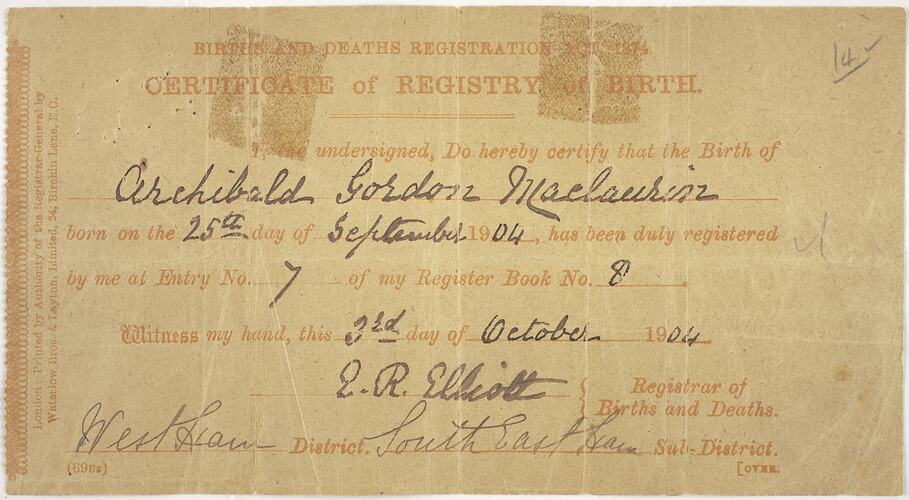 BIRTHS AND DEATHS REGISTRATION ACT, 1874.
CERTIFICATE of REGISTRY of BIRTH.
14
I, the undersigned, Do hereby certify that the Birth of
Archibald Gordon Maclaurin
born on the 25th day of September 1904, has been duly registered
by me at Entry No. 7 of my Register Book No. 8.
Witness my hand, this 3rd day of October 1904
E. R. Elliott Registrar of
Births and Deaths.
West Ham District. South East Ham Sub-District.
(69us)
[OVER.
London: Printed by Authority of the Registrar-General by
Waterlow Bros. & Layton, Limited, 24, Birchin Lane, E.C.